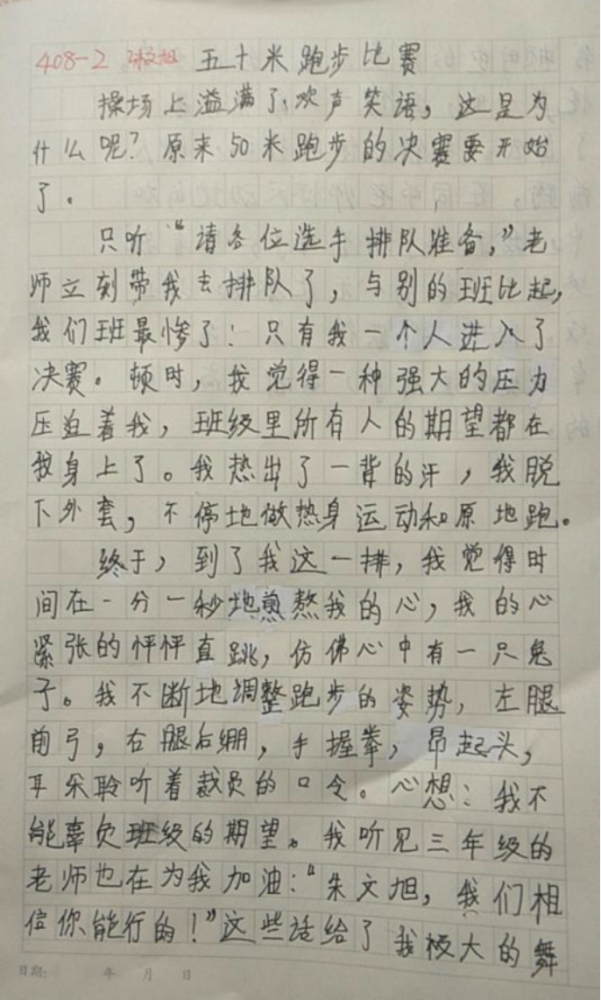 408-2 朱文旭 五十米跑步比赛
操场上溢满了欢声笑语，这是为
什么呢？原来50米跑步的决赛要开始
了。
只听“请各位选手排队准备，”老
师立刻带我去排队了，与别的班比起，
我们班最惨了！只有我一个人进入了
决赛。顿时，我觉得一种强大的压力
压迫着我，班级里所有人的期望都在
我身上了。我热出了一背的汗，我脱
下外套，不停地做热身运动和原地跑。
终于，到了我这一排，我觉得时
间在一分一秒地煎熬我的心，我的心
紧张的怦怦直跳，仿佛心中有一只兔
子。我不断地调整跑步的姿势，左腿
前弓，右腿后绷，手握拳，昂起头，
耳朵聆听着裁员的口令。心想：我不
能辜负班级的期望。我听见三年级的
老师也在为我加油：“朱文旭，我们相
信你能行的！”这些话给了我极大的舞
日期： 年 月 日